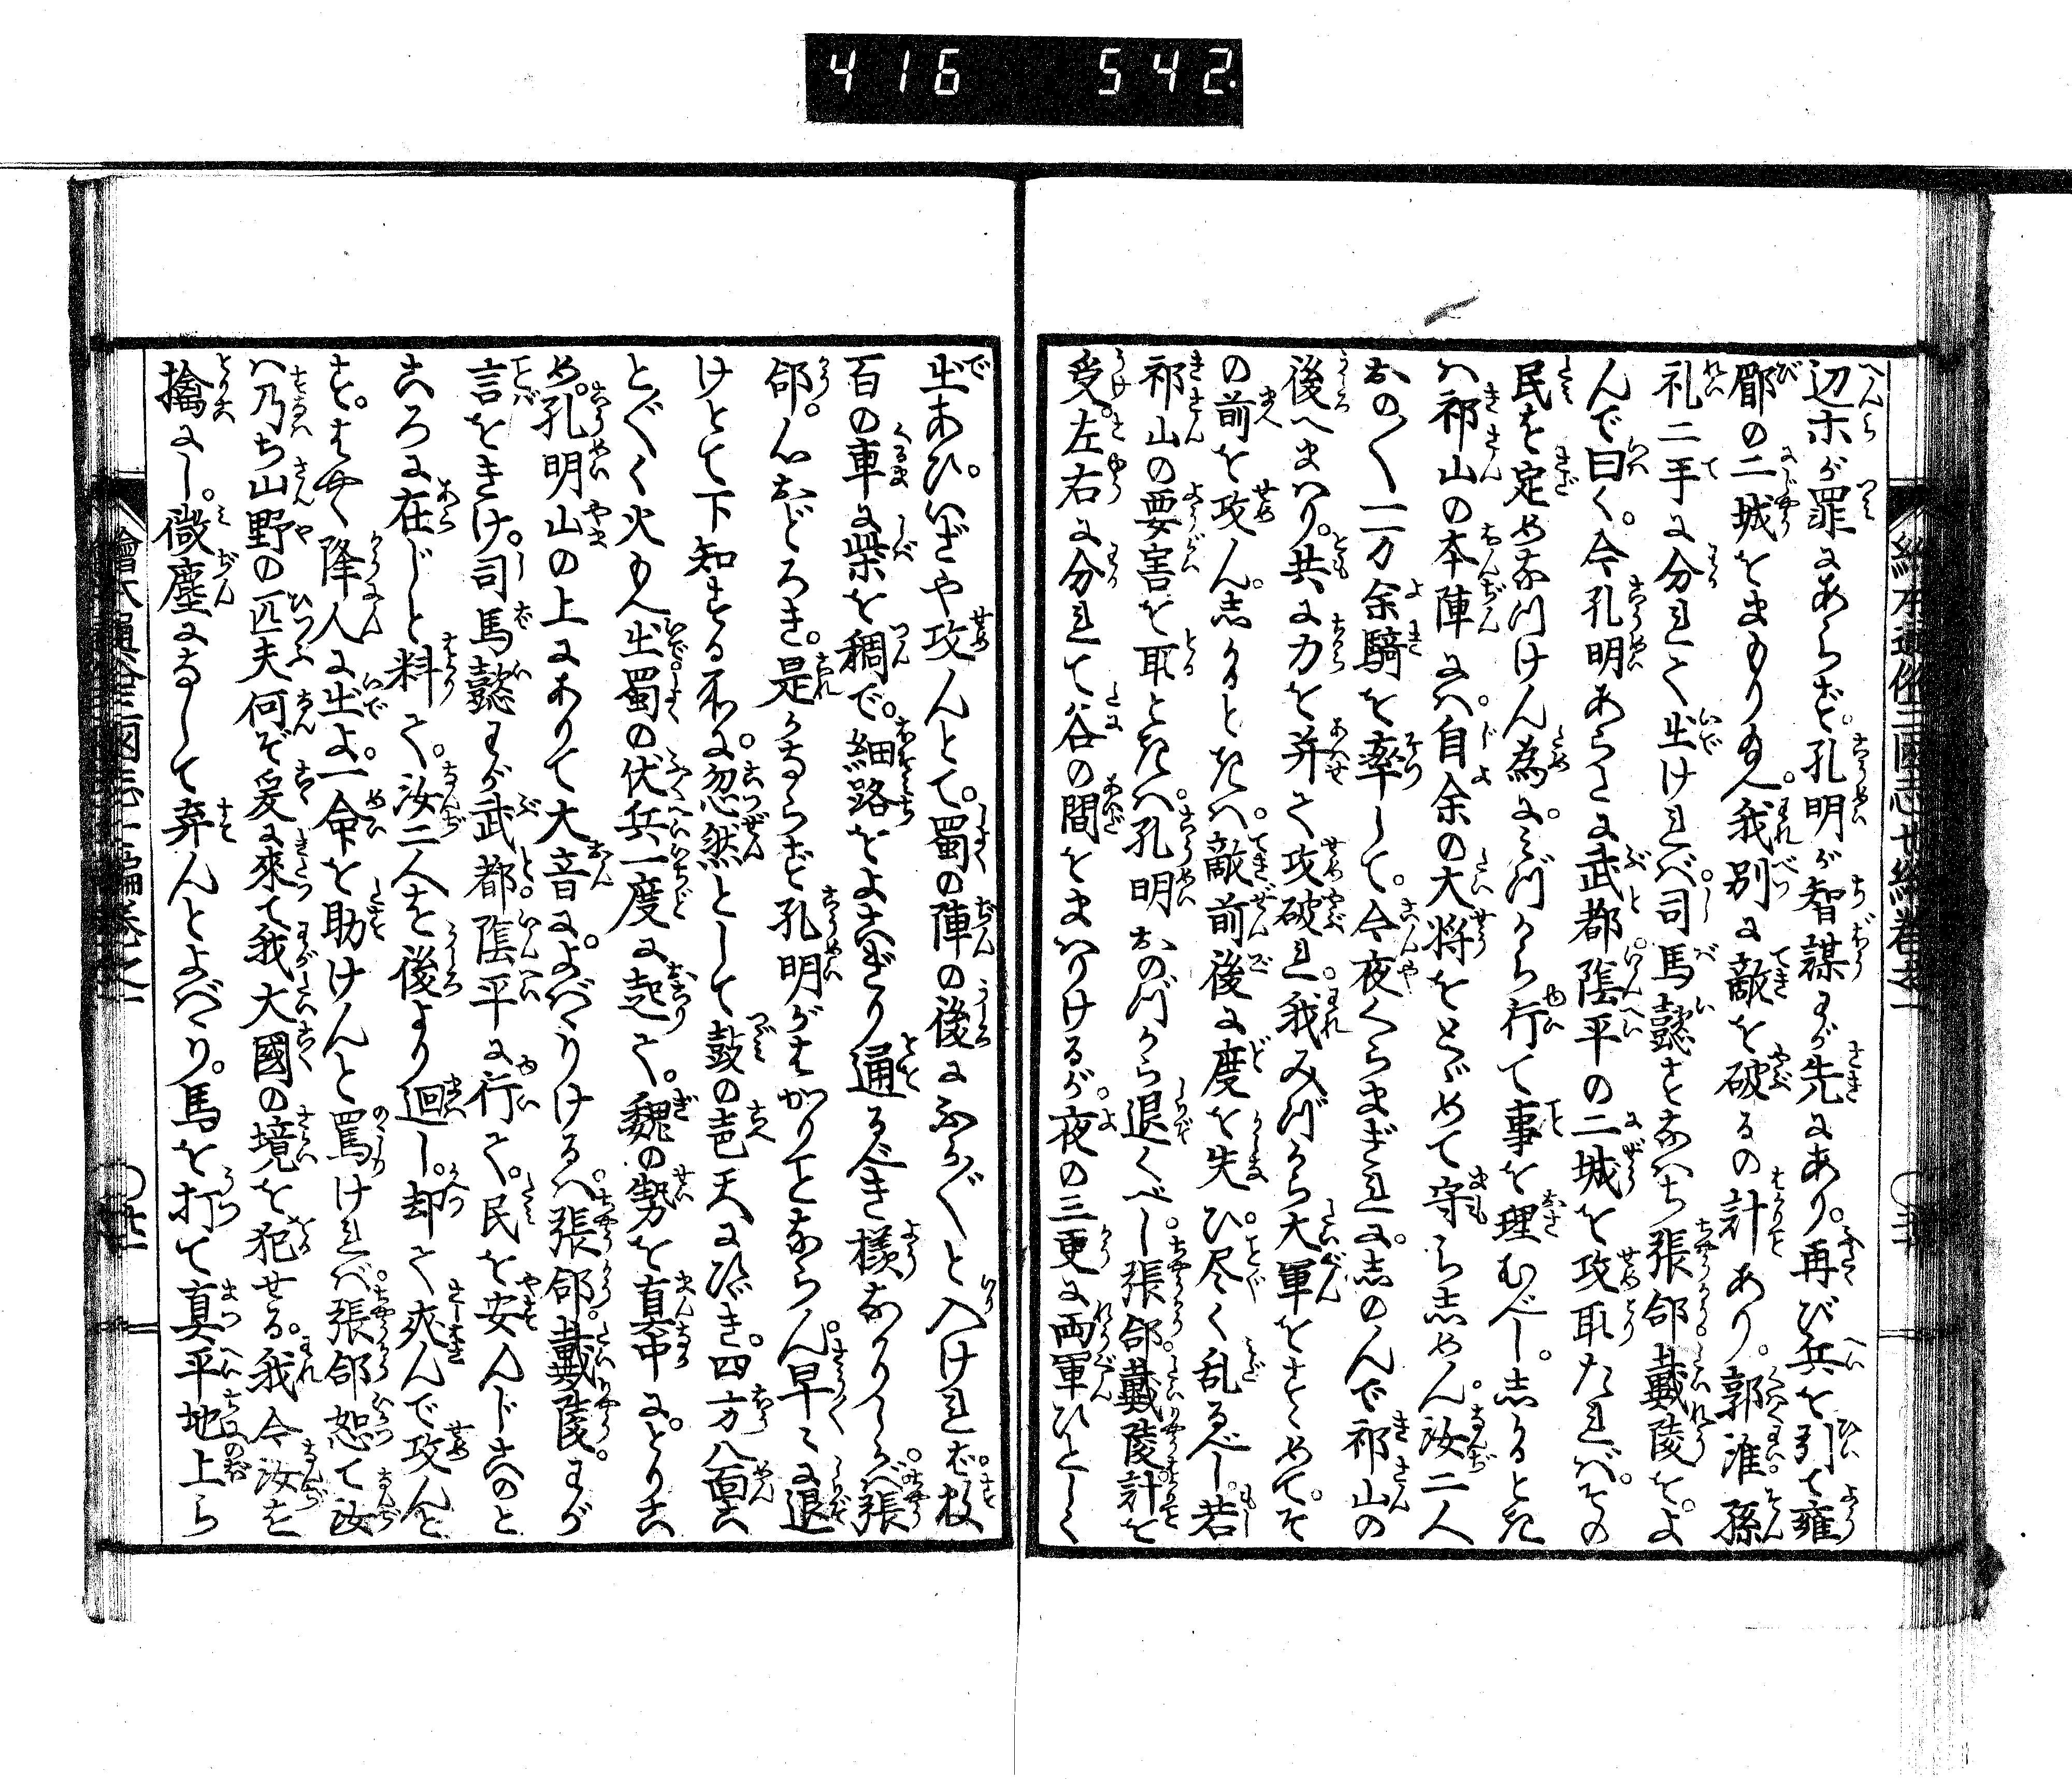 416 542.
絵本通俗三國志七編巻之一
辺ホが罪にあらず。孔明が智謀わが先にあり。再び兵を引て雍
郿の二城をまもり玉へ。我別に敵を破るの計あり。郭淮。孫
礼二手に分れて出ければ。司馬懿すなはち張郃。戴陵を。よ
んで曰く。今孔明あらたに武都。陰平の二城を攻取たれば。その
民を定めなつけん為に。みづから行て事を理むべし。しかるとき
ハ祁山の本陣にハ。自余の大将をとゞめて守らしめん。汝二人
おの〱一万余騎を率して。今夜くらまぎれに。しのんで祁山の
後へまハり。共に力を并て攻破れ。我みづから大軍をすゝめて。そ
の前を攻ん。しかるときハ。敵前後に度を失ひ。尽く乱るべし。若
祁山の要害を取ときハ。孔明おのづから退くべし。張郃。戴陵計を
受。左右に分れて谷の間をまハりけるが。夜の三更に両軍ひとしく
出あひ。いざや攻んとて。蜀の陣の後にふか〲と入ければ。数
百の車に柴を稠で。細路をよこぎり通るべき様なかりしかバ。張
郃。心おどろき。是かならず孔明がはかりことならん。早〻に退
けとて下知する所に。忽然として鼓の声天にひゞき。四方八面こ
と〲く火もへ出。蜀の伏兵一度に起て。魏の勢を真中に。とりこ
め。孔明山の上にありて大音に。よバりけるハ。張郃。戴陵。わが
言をきけ。司馬懿わが武都。陰平に行て。民を安んじこのと
ころに在じと料て。汝二人を後より廻し。却て夾んで攻んと
す。はやく降人に出よ。一命を助けんと罵ければ。張郃怒て汝
ハ乃ち山野の匹夫何ぞ爰に來て我大國の境を犯せる。我今汝を
擒にし。微塵になして弃んとよバり。馬を打て真平地上ら
繪本通俗三國志七編巻之一